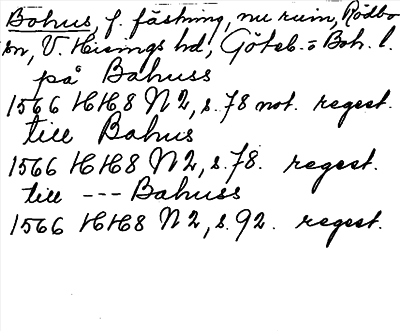 Bohus, f. fästning, nu ruin, Rödbo
sn, V. Hisings hd, Göteb. o Boh. l.
på Bahuss
1566 HH8 N2, s. 78 not. regest.
till Bahus
1566 HH8 N2, s. 78. regest.
till --- Bahuss
1566 HH8 N2, s. 92. regest.